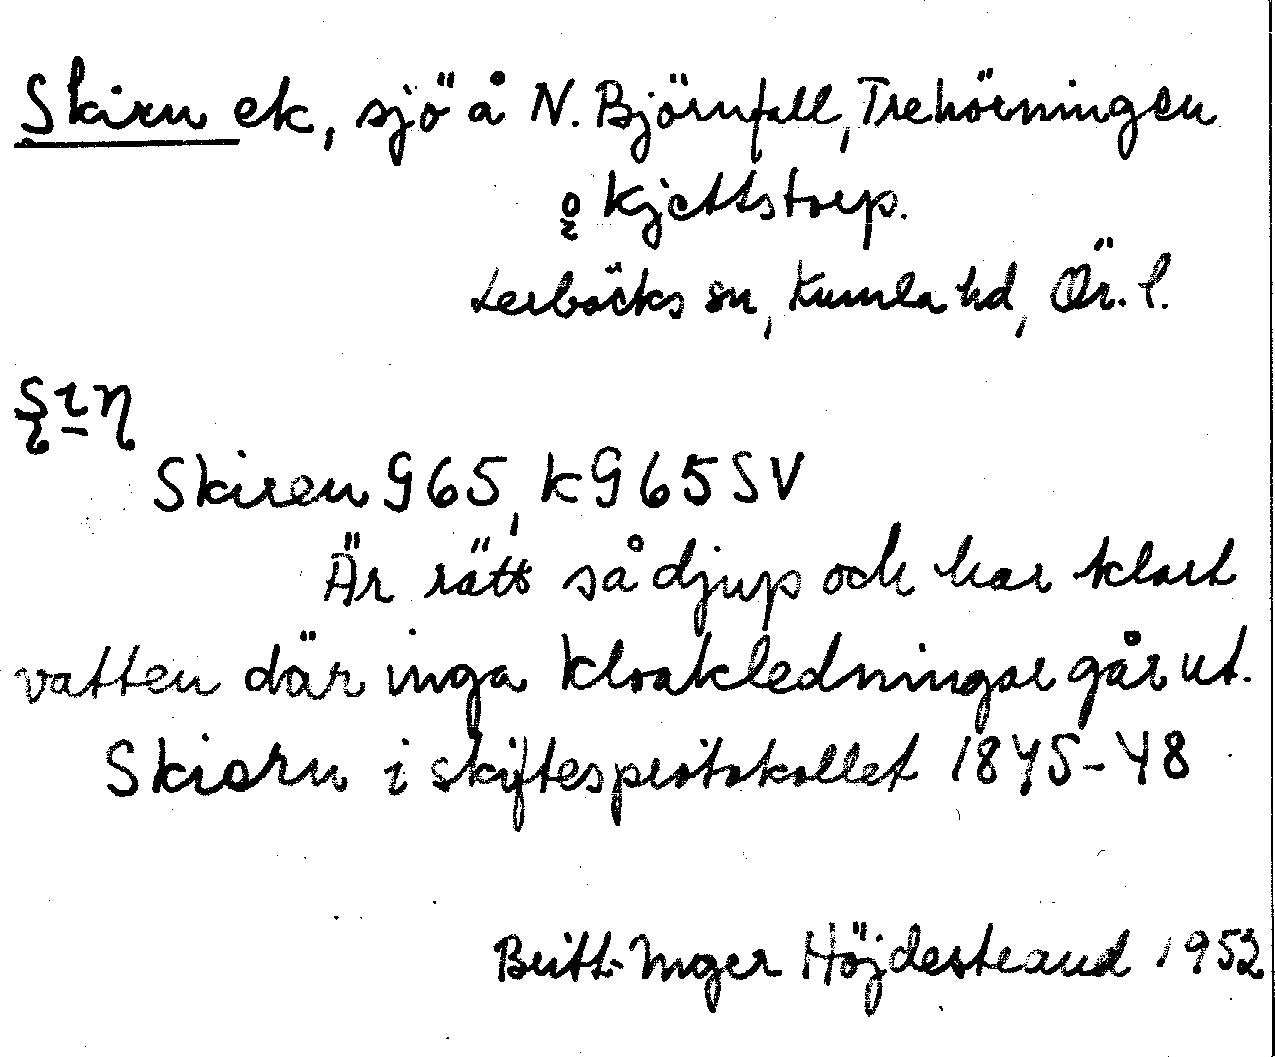 Skirn ek, sjö å N. Björnfall, Trehörningen
o Kjettstorp.
Lerbäcks sn, Kumla hd, Ör. l.
Skiren G65, k G65 SV
Är rätt så djup och har klart
vatten där inga kloakledningar går ut.
Skiørn i skiftesprotokollet 1845-48
Britt-Inger Höjdestrand 1952